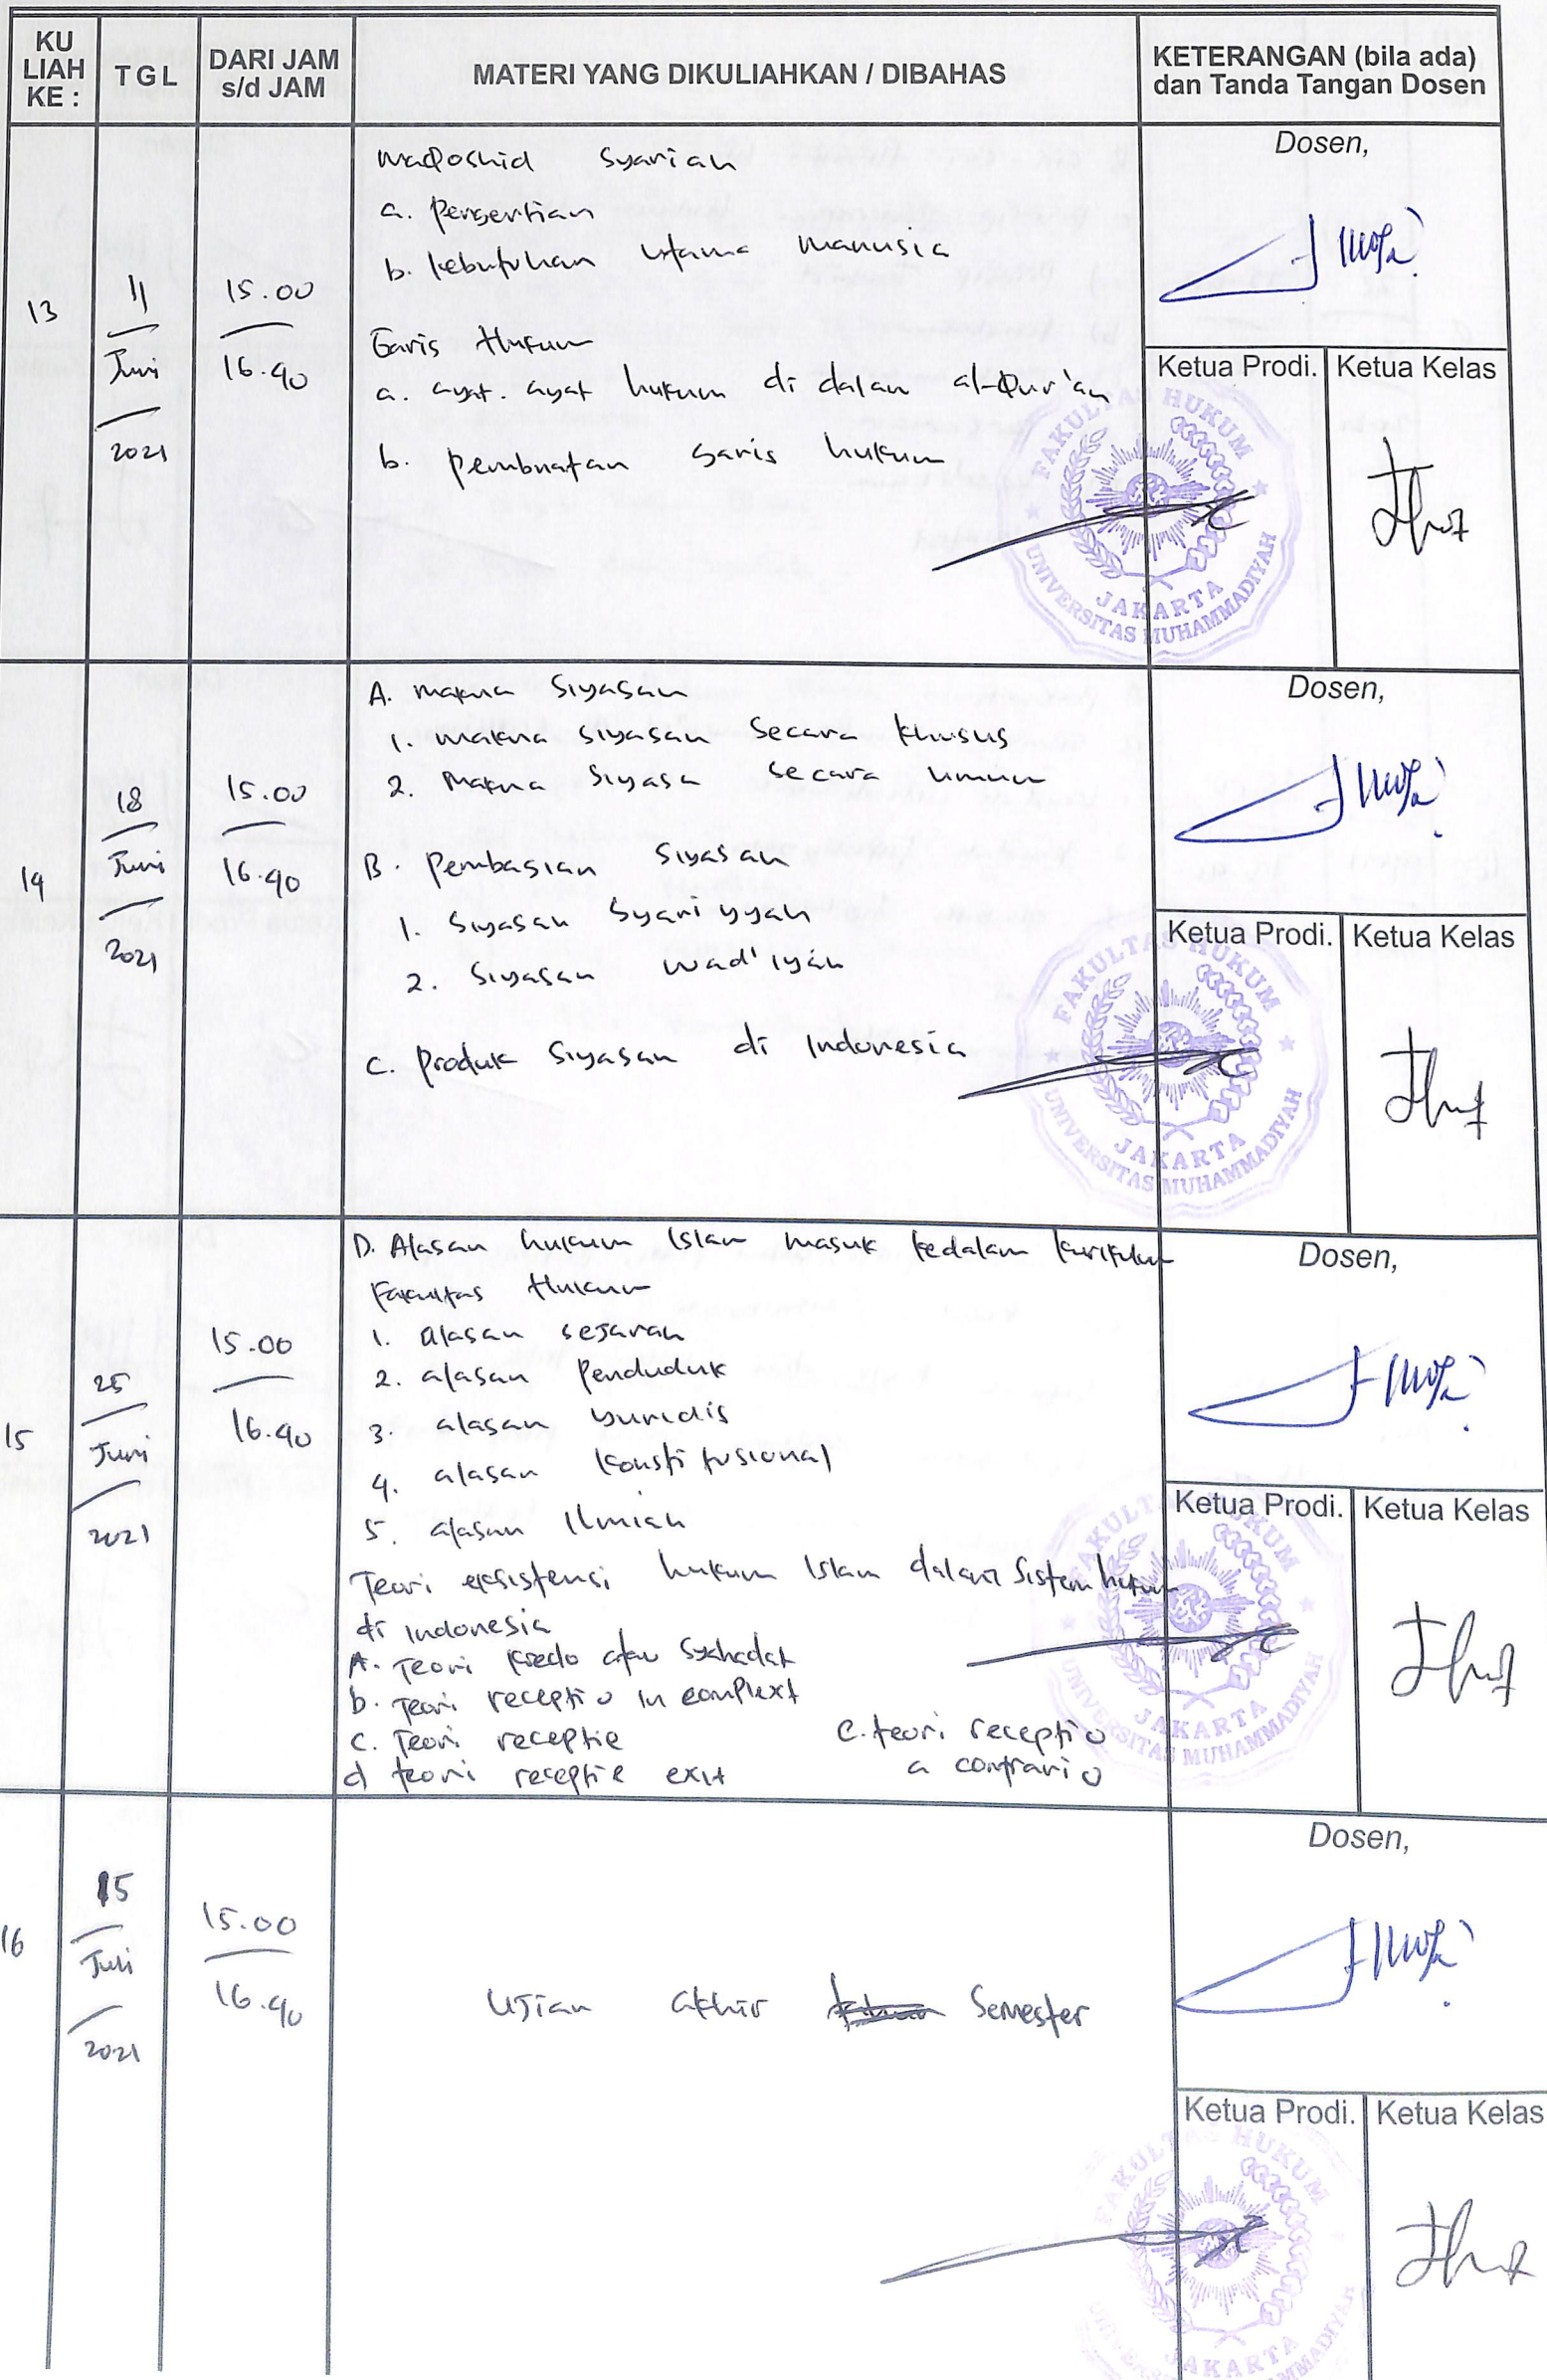 KU LIAH KE :
TGL
DARI JAM s/d JAM
MATERI YANG DIKULIAHKAN / DIBAHAS
KETERANGAN (bila ada) dan Tanda Tangan Dosen
13
11 Juni 2021
15.00
16.40
Maqoshid Syariah
a. Pengertian
b. kebutuhan utama manusia
Garis Hukum
a. ayat-ayat hukum di dalam al-Qur'an
b. pembuatan garis hukum
Dosen,
Ketua Prodi.
Ketua Kelas
FAKULTAS HUKUM
UNIVERSITAS MUHAMMADIYAH
JAKARTA
14
18 Juni 2021
15.00
16.40
A. makna Siyasah
1. makna siyasah Secara khusus
2. Makna Siyasa secara umum
B. Pembagian Siyasah
1. Siyasah Syariyyah
2. Siyasah wad'iyah
C. Produk Siyasah di Indonesia
Dosen,
Ketua Prodi.
Ketua Kelas
FAKULTAS HUKUM
UNIVERSITAS MUHAMMADIYAH
JAKARTA
15
25 Juni 2021
15.00
16.40
D. Alasan hukum Islam masuk kedalam kurikulum
Fakultas Hukum
1. alasan sejarah
2. alasan Penduduk
3. alasan yuridis
4. alasan konstitusional
5. alasan Ilmiah
Teori eksistensi hukum Islam dalam Sistem hukum
di Indonesia
A. Teori kredo atau Syahadat
b. Teori receptio in complext
c. Teori receptie
d teori receptie exit
e. teori receptio
a contrario
Dosen,
Ketua Prodi.
Ketua Kelas
FAKULTAS HUKUM
UNIVERSITAS MUHAMMADIYAH
JAKARTA
16
15 Juli 2021
15.00
16.40
Ujian akhir Semester
Dosen,
Ketua Prodi.
Ketua Kelas
FAKULTAS HUKUM
UNIVERSITAS MUHAMMADIYAH
JAKARTA